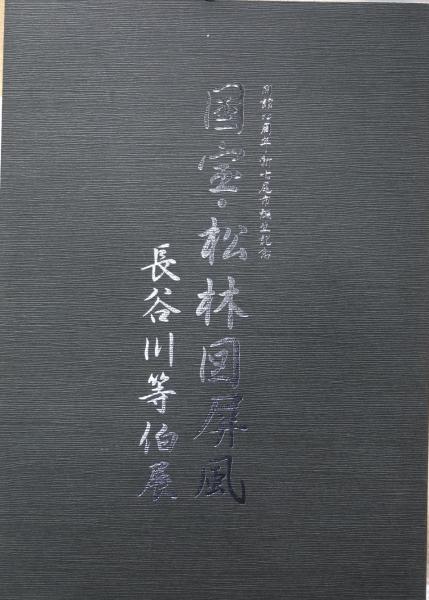 開館十周年・新七尾市誕生記念
国宝・松林図屏風
長谷川等伯展